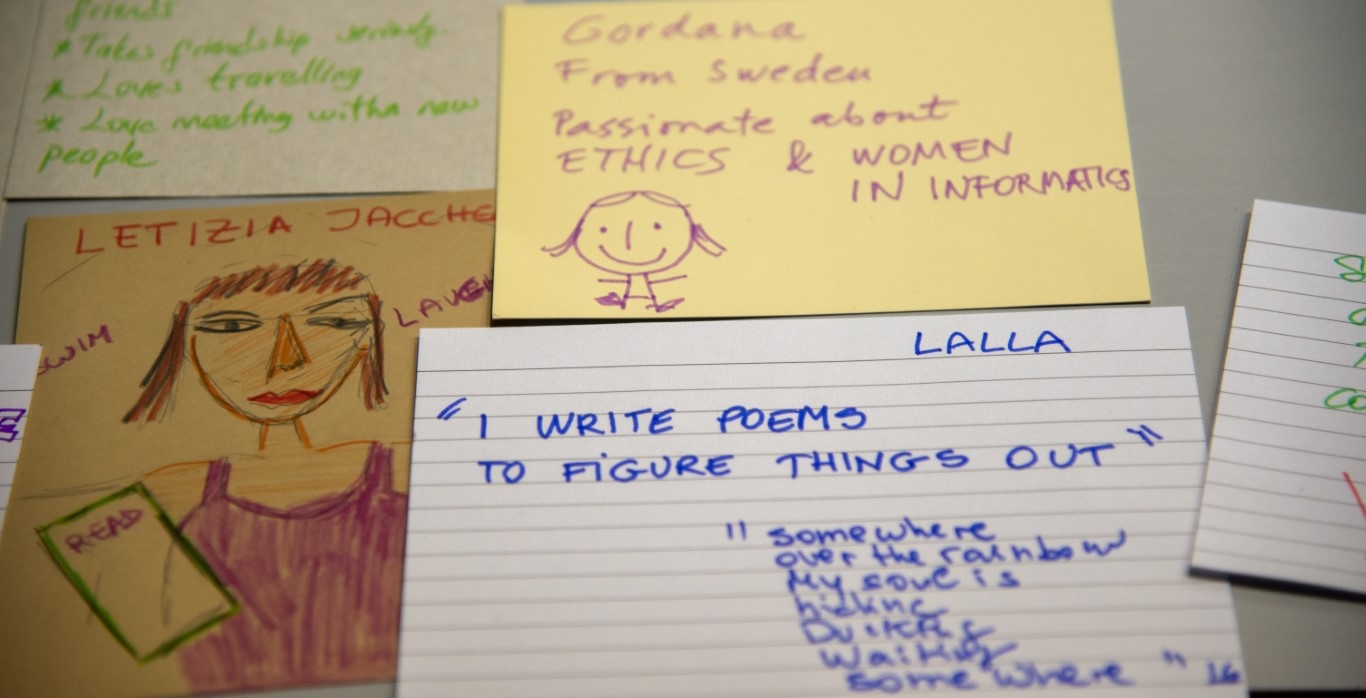 friends
* Takes friendship seriously
* Loves travelling
* Love meeting with a new
people
Gordana
From Sweden
Passionate about
ETHICS & WOMEN
IN INFORMATICS
LETIZIA JACCHE
SWIM
LAUGH
READ
LALLA
"I WRITE POEMS
TO FIGURE THINGS OUT"
"somewhere
over the rainbow
My soul is
hiding
Waiting
somewhere" 16